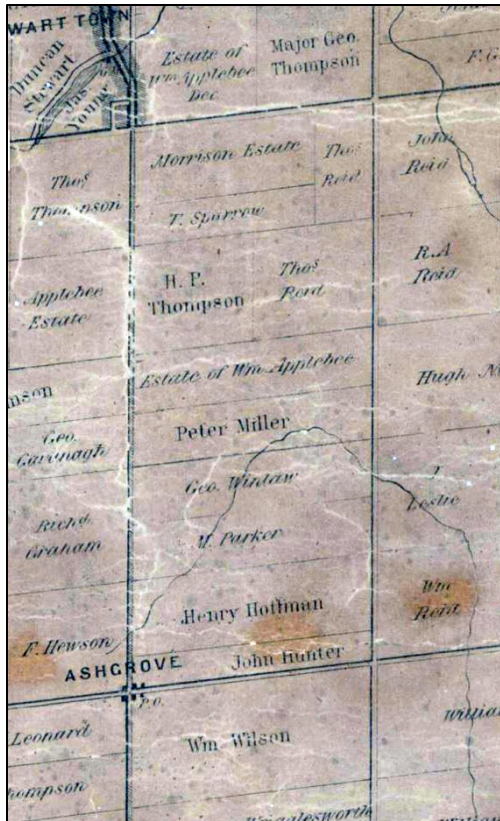 WART TOWN
Duncan
Stewart
Jas
Young
Estate of
Wm Applebee
Dec
Major Geo.
Thompson
F. G
Thos
Thompson
Morrison Estate
Thos
Reid
John
Reid
T. Sparrow
Applebee
Estate
H. P.
Thompson
Thos
Reid
R. A
Reid
nson
Estate of Wm Applebee
Hugh
Geo.
Cavanagh
Peter Miller
Geo. Winlaw
Leslie
Richd
Graham
M. Parker
Henry Hoffman
Wm
Reid
F. Hewson
ASHGROVE
John Hunter
P.O.
Leonard
Wm Wilson
Willia
hompson
glesworth